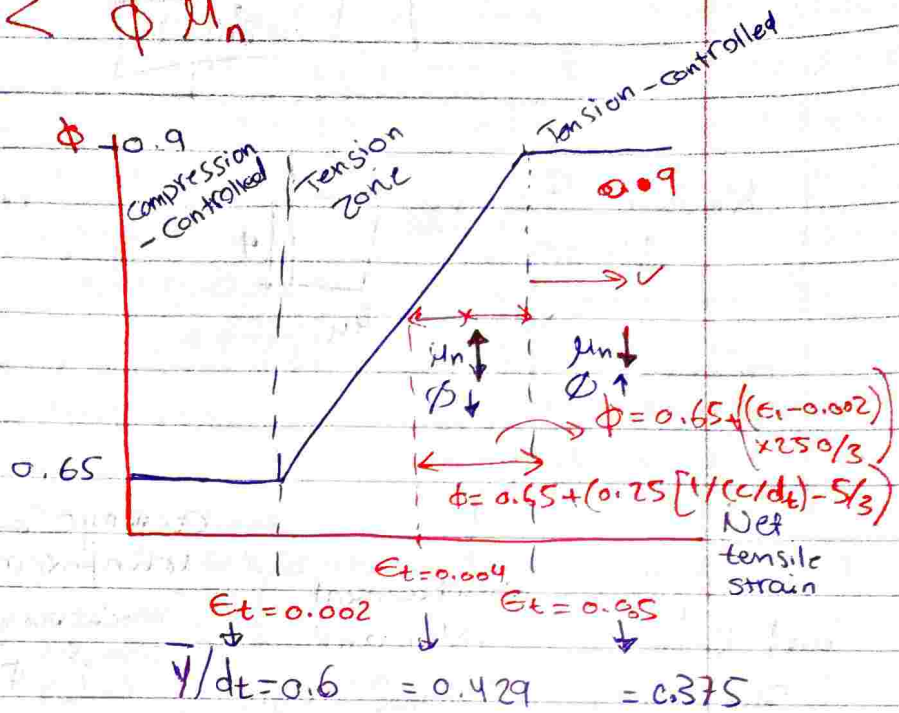 < ϕ Mn
Tension-controlled
ϕ 0.9
Compression
- Controlled
Tension
zone
0.9
✓
Mn ↕
Ø ↓
Mn ↓
Ø ↑
ϕ = 0.65 + ((Et-0.002)
×250/3)
0.65
ϕ = 0.65 + (0.25 [1/(c/dt) - 5/3)
Net
tensile
strain
Et=0.004
Et=0.002
Et=0.005
Y/dt=0.6 = 0.429 = 0.375